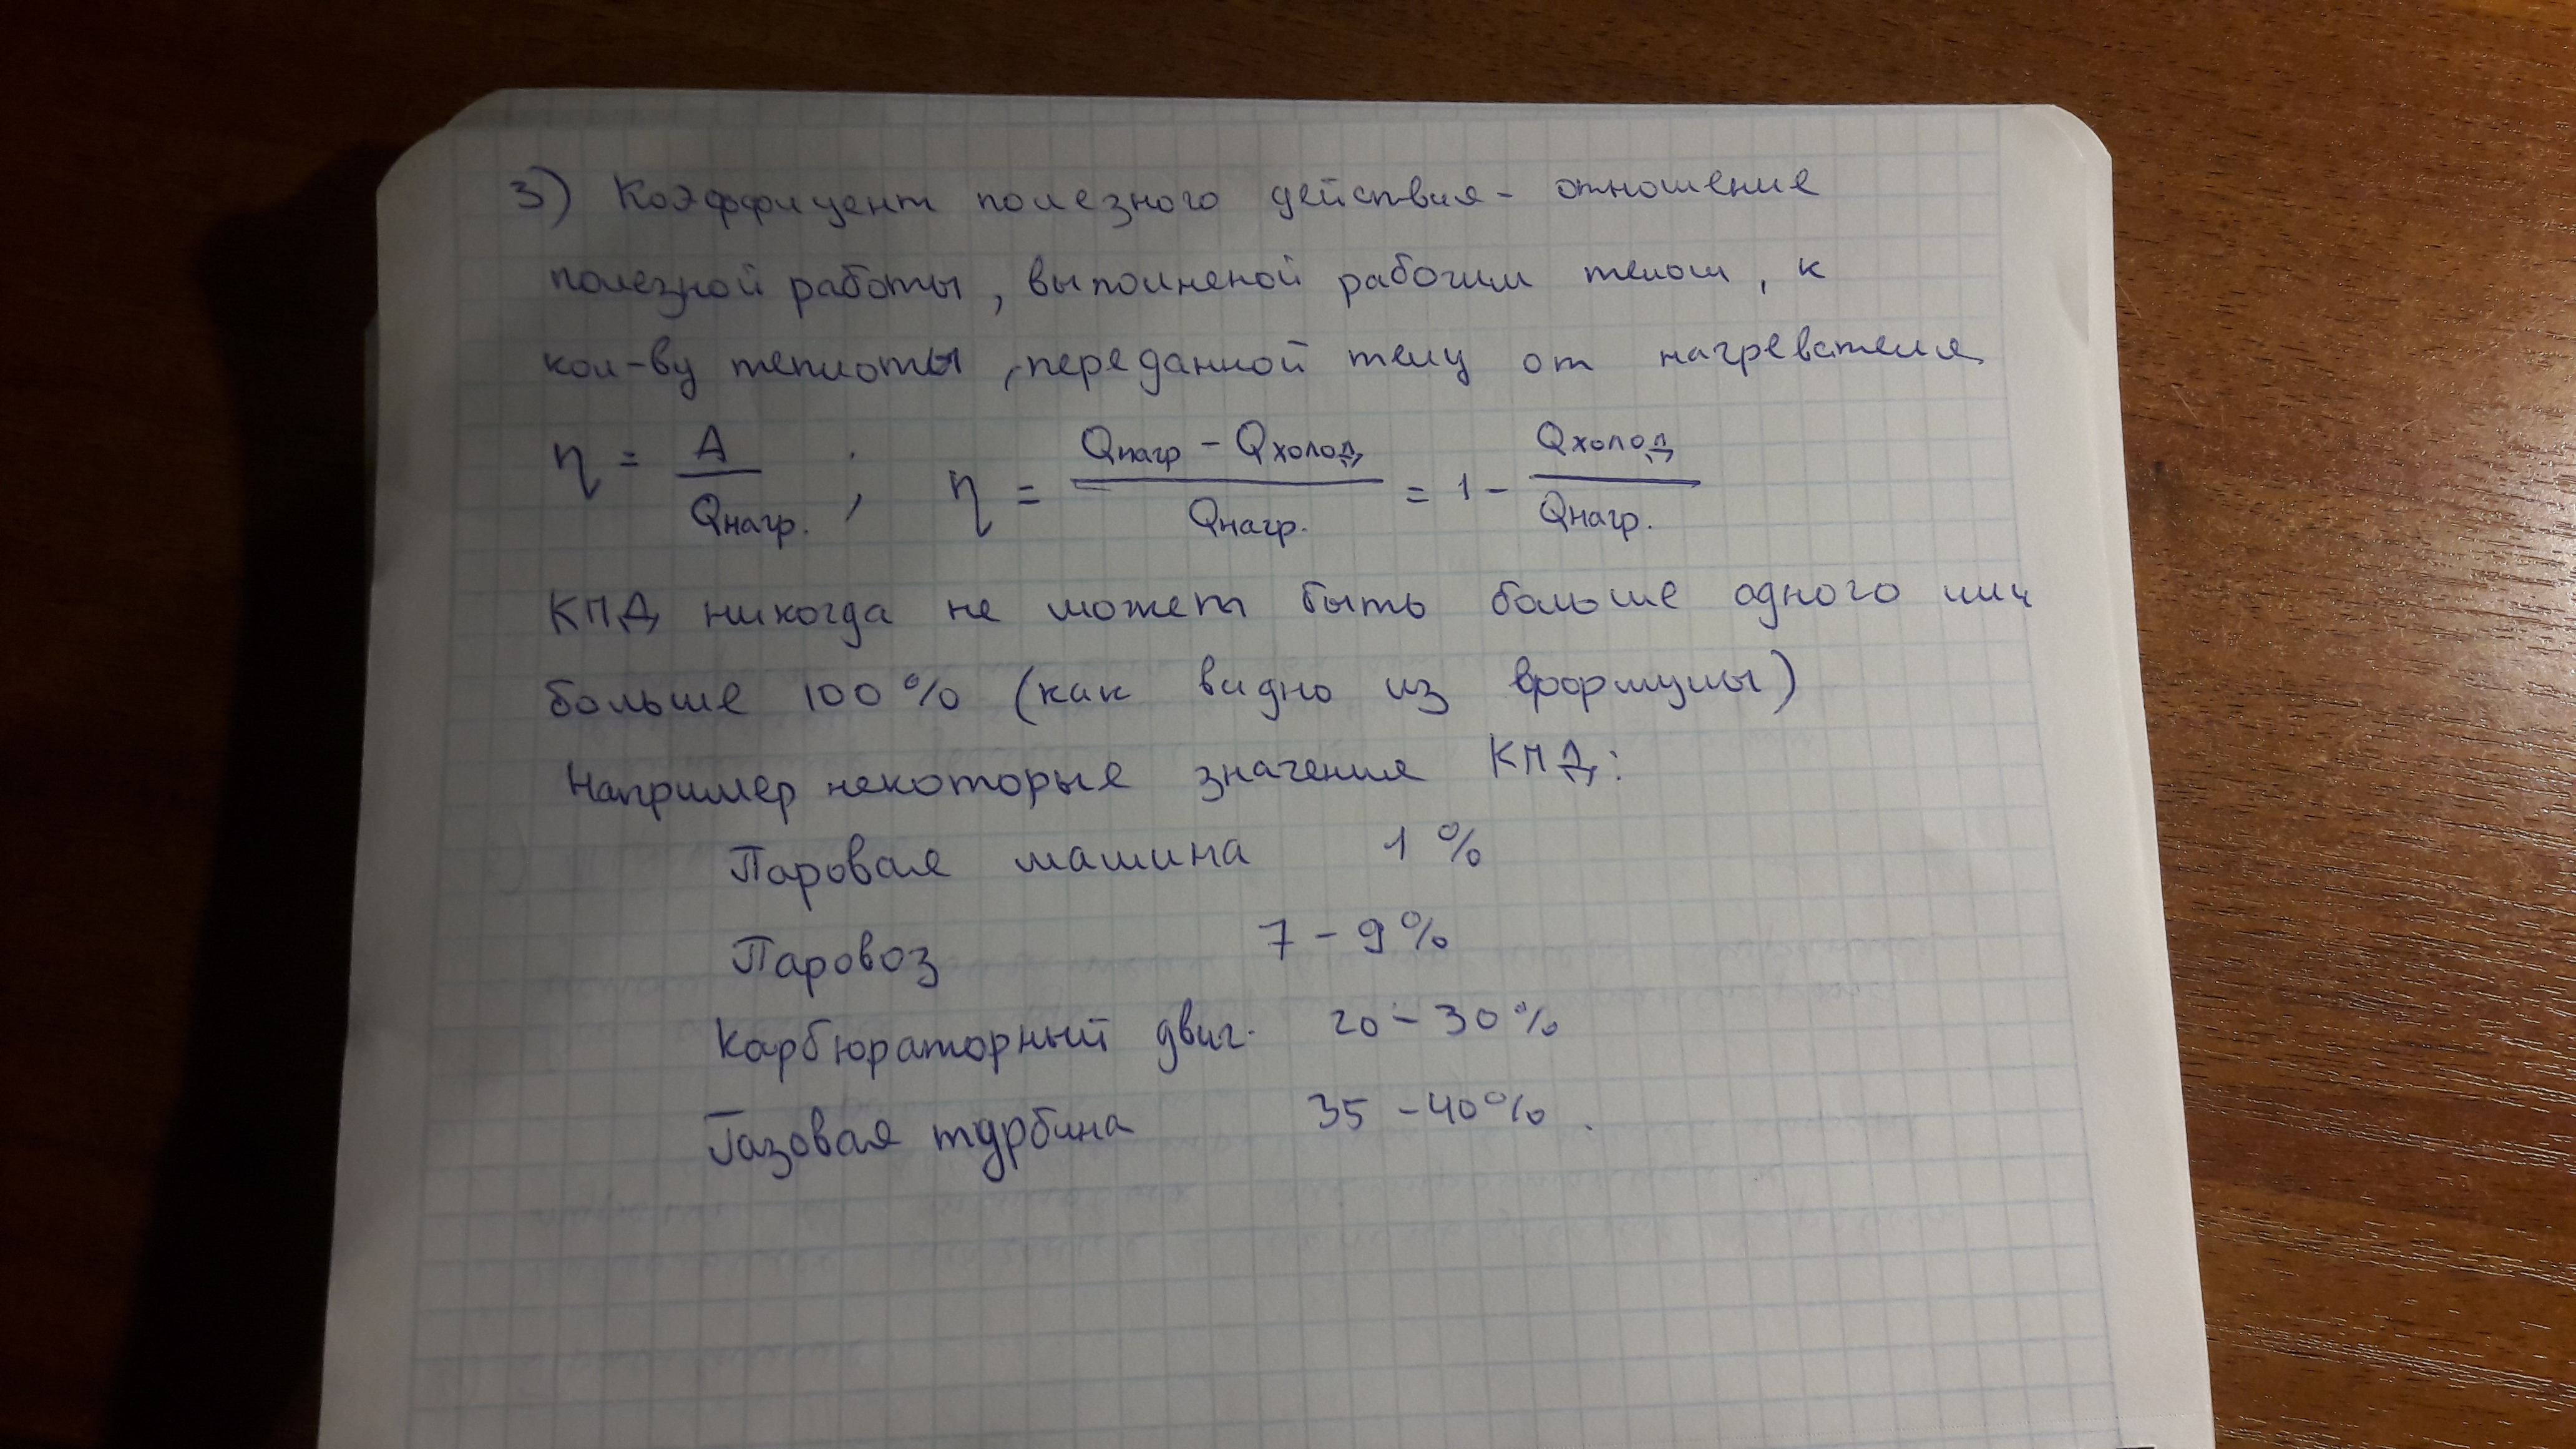 3) Коэффицент полезного действия - отношение
полезной работы, выполненой рабочим телом, к
кол-ву теплоты, переданной телу от нагревателя
η = A / Qнагр. ; η = (Qнагр - Qхолод) / Qнагр. = 1 - Qхолод / Qнагр.
КПД никогда не может быть больше одного или
больше 100% (как видно из формулы)
Например некоторые значения КПД:
Паровая машина 1 %
Паровоз 7 - 9 %
Карбюраторный двиг. 20 - 30 %
Газовая турбина 35 - 40 % .